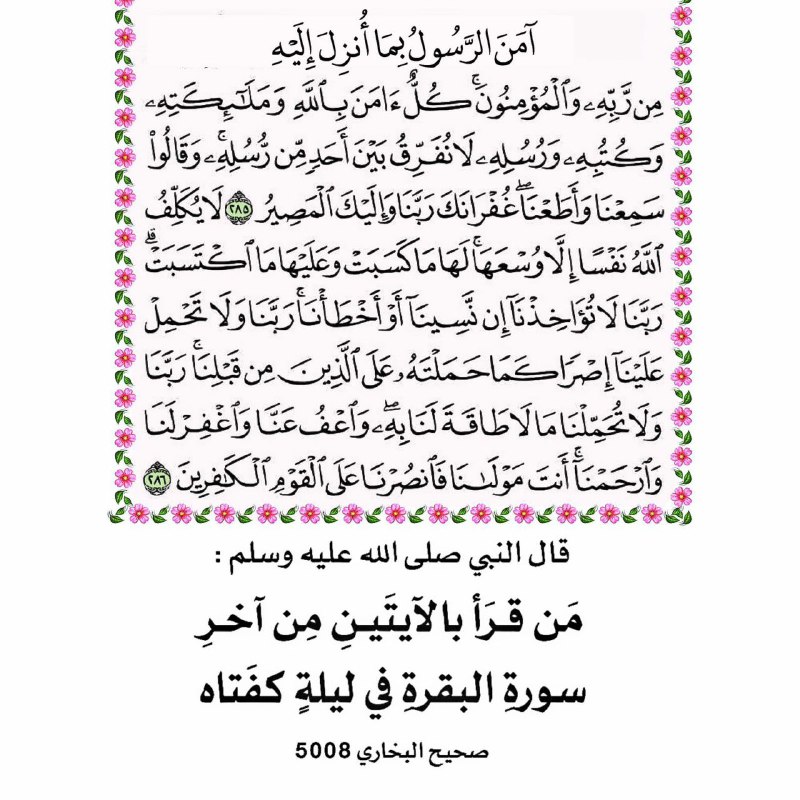 آمَنَ الرَّسُولُ بِمَا أُنزِلَ إِلَيْهِ
مِن رَّبِّهِۦ وَٱلْمُؤْمِنُونَۚ كُلٌّ ءَامَنَ بِٱللَّهِ وَمَلَٰٓئِكَتِهِۦ
وَكُتُبِهِۦ وَرُسُلِهِۦ لَا نُفَرِّقُ بَيْنَ أَحَدٍ مِّن رُّسُلِهِۦۚ وَقَالُوا۟
سَمِعْنَا وَأَطَعْنَاۖ غُفْرَانَكَ رَبَّنَا وَإِلَيْكَ ٱلْمَصِيرُ ٢٨٥ لَا يُكَلِّفُ
ٱللَّهُ نَفْسًا إِلَّا وُسْعَهَاۚ لَهَا مَا كَسَبَتْ وَعَلَيْهَا مَا ٱكْتَسَبَتْۗ
رَبَّنَا لَا تُؤَاخِذْنَآ إِن نَّسِينَآ أَوْ أَخْطَأْنَاۚ رَبَّنَا وَلَا تَحْمِلْ
عَلَيْنَآ إِصْرًا كَمَا حَمَلْتَهُۥ عَلَى ٱلَّذِينَ مِن قَبْلِنَاۚ رَبَّنَا
وَلَا تُحَمِّلْنَا مَا لَا طَاقَةَ لَنَا بِهِۦۖ وَٱعْفُ عَنَّا وَٱغْفِرْ لَنَا
وَٱرْحَمْنَآۚ أَنتَ مَوْلَىٰنَا فَٱنصُرْنَا عَلَى ٱلْقَوْمِ ٱلْكَٰفِرِينَ ٢٨٦
قال النبي صلى الله عليه وسلم :
مَن قرَأ بالآيتَينِ مِن آخرِ
سورةِ البقرةِ في ليلةٍ كفَتاه
صحيح البخاري 5008